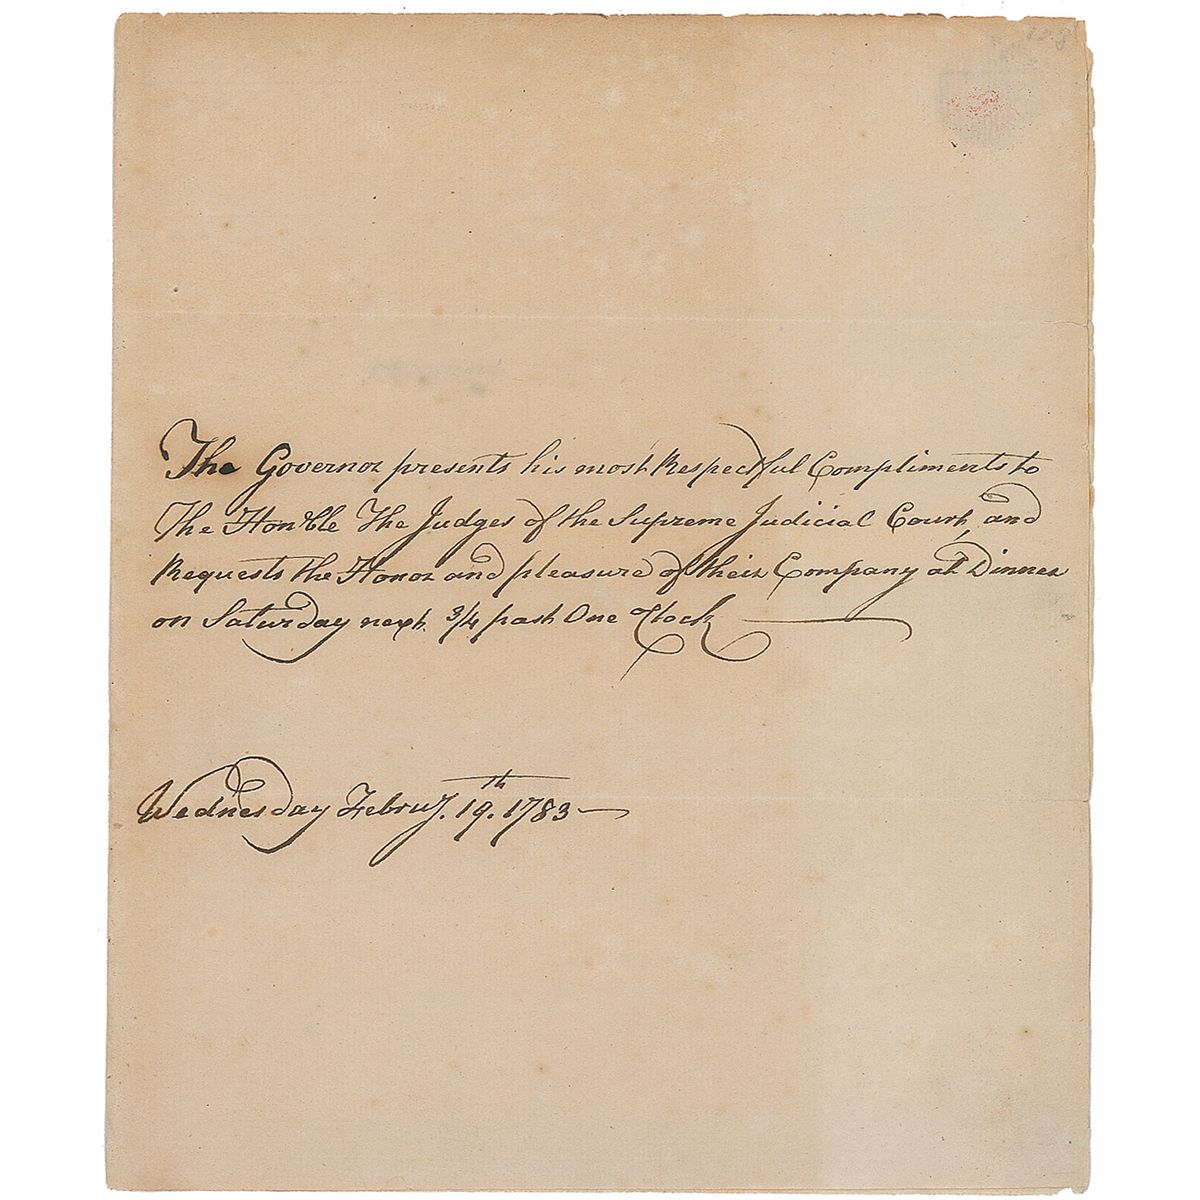 128
The Governor presents his most Respectful Compliments to
The Hon'ble The Judges of the Supreme Judicial Court, and
Requests the Honor and pleasure of their Company at Dinner
on Saturday next. 3/4 past One O'Clock
Wednesday Februy. 19.th 1783